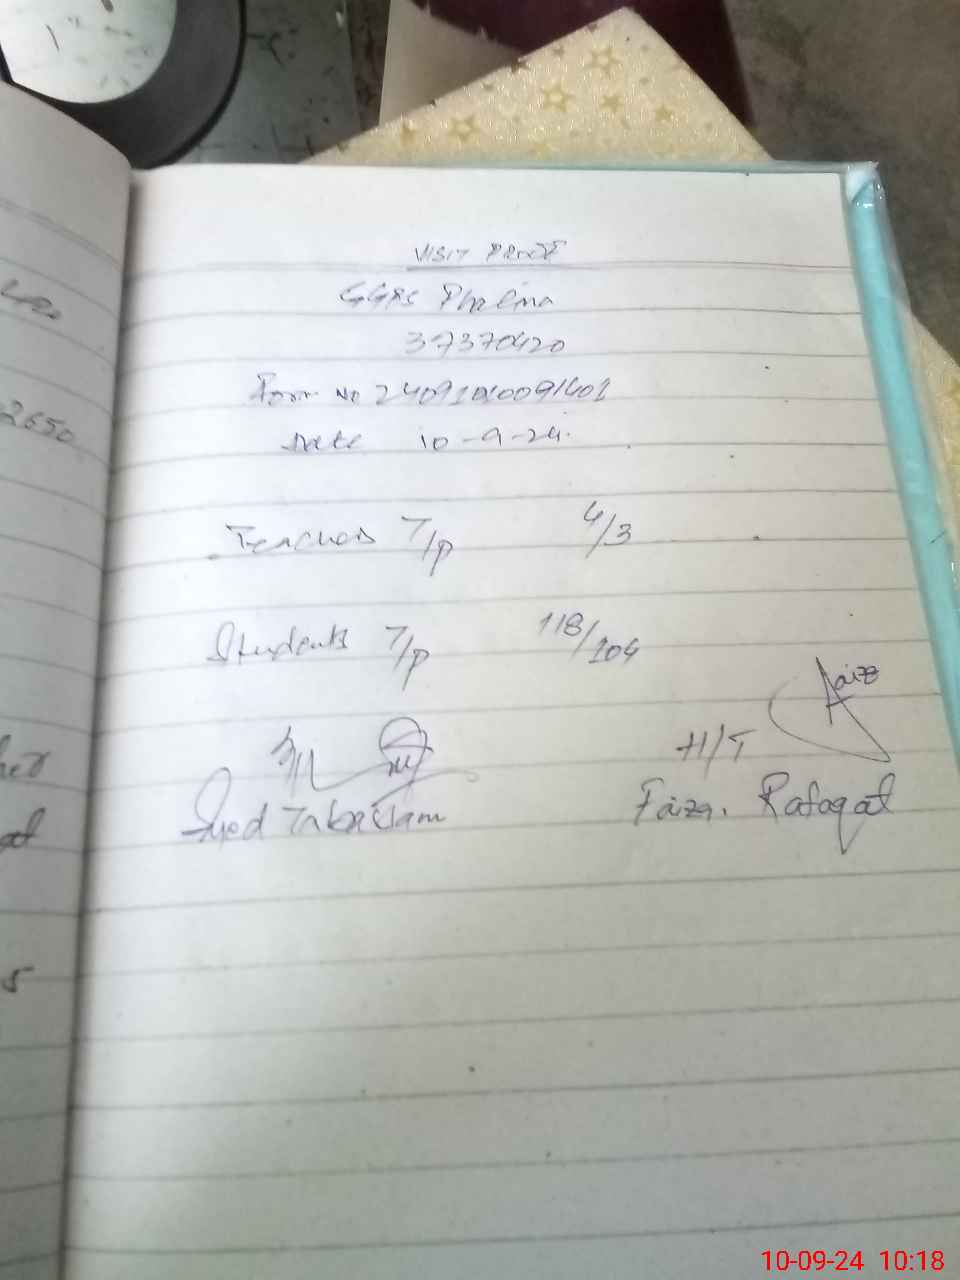 VISIT PROOF
GGPS Phalina
37370420
Form No 24091010091401
Date 10-9-24.
Teachers T/P 4/3
Students T/P 118/104
Faiz
H/T
Syed Faiza. Rafaqat
2650
her
5
10-09-24 10:18